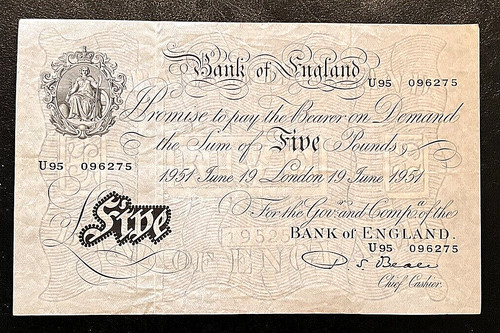 Bank of England
U95 096275
Promise to pay the Bearer on Demand
the Sum of Five Pounds
U95 096275
1951 June 19 London 19 June 1951
For the Govr. and Compa. of the
Five
BANK OF ENGLAND.
U95 096275
Chief Cashier.